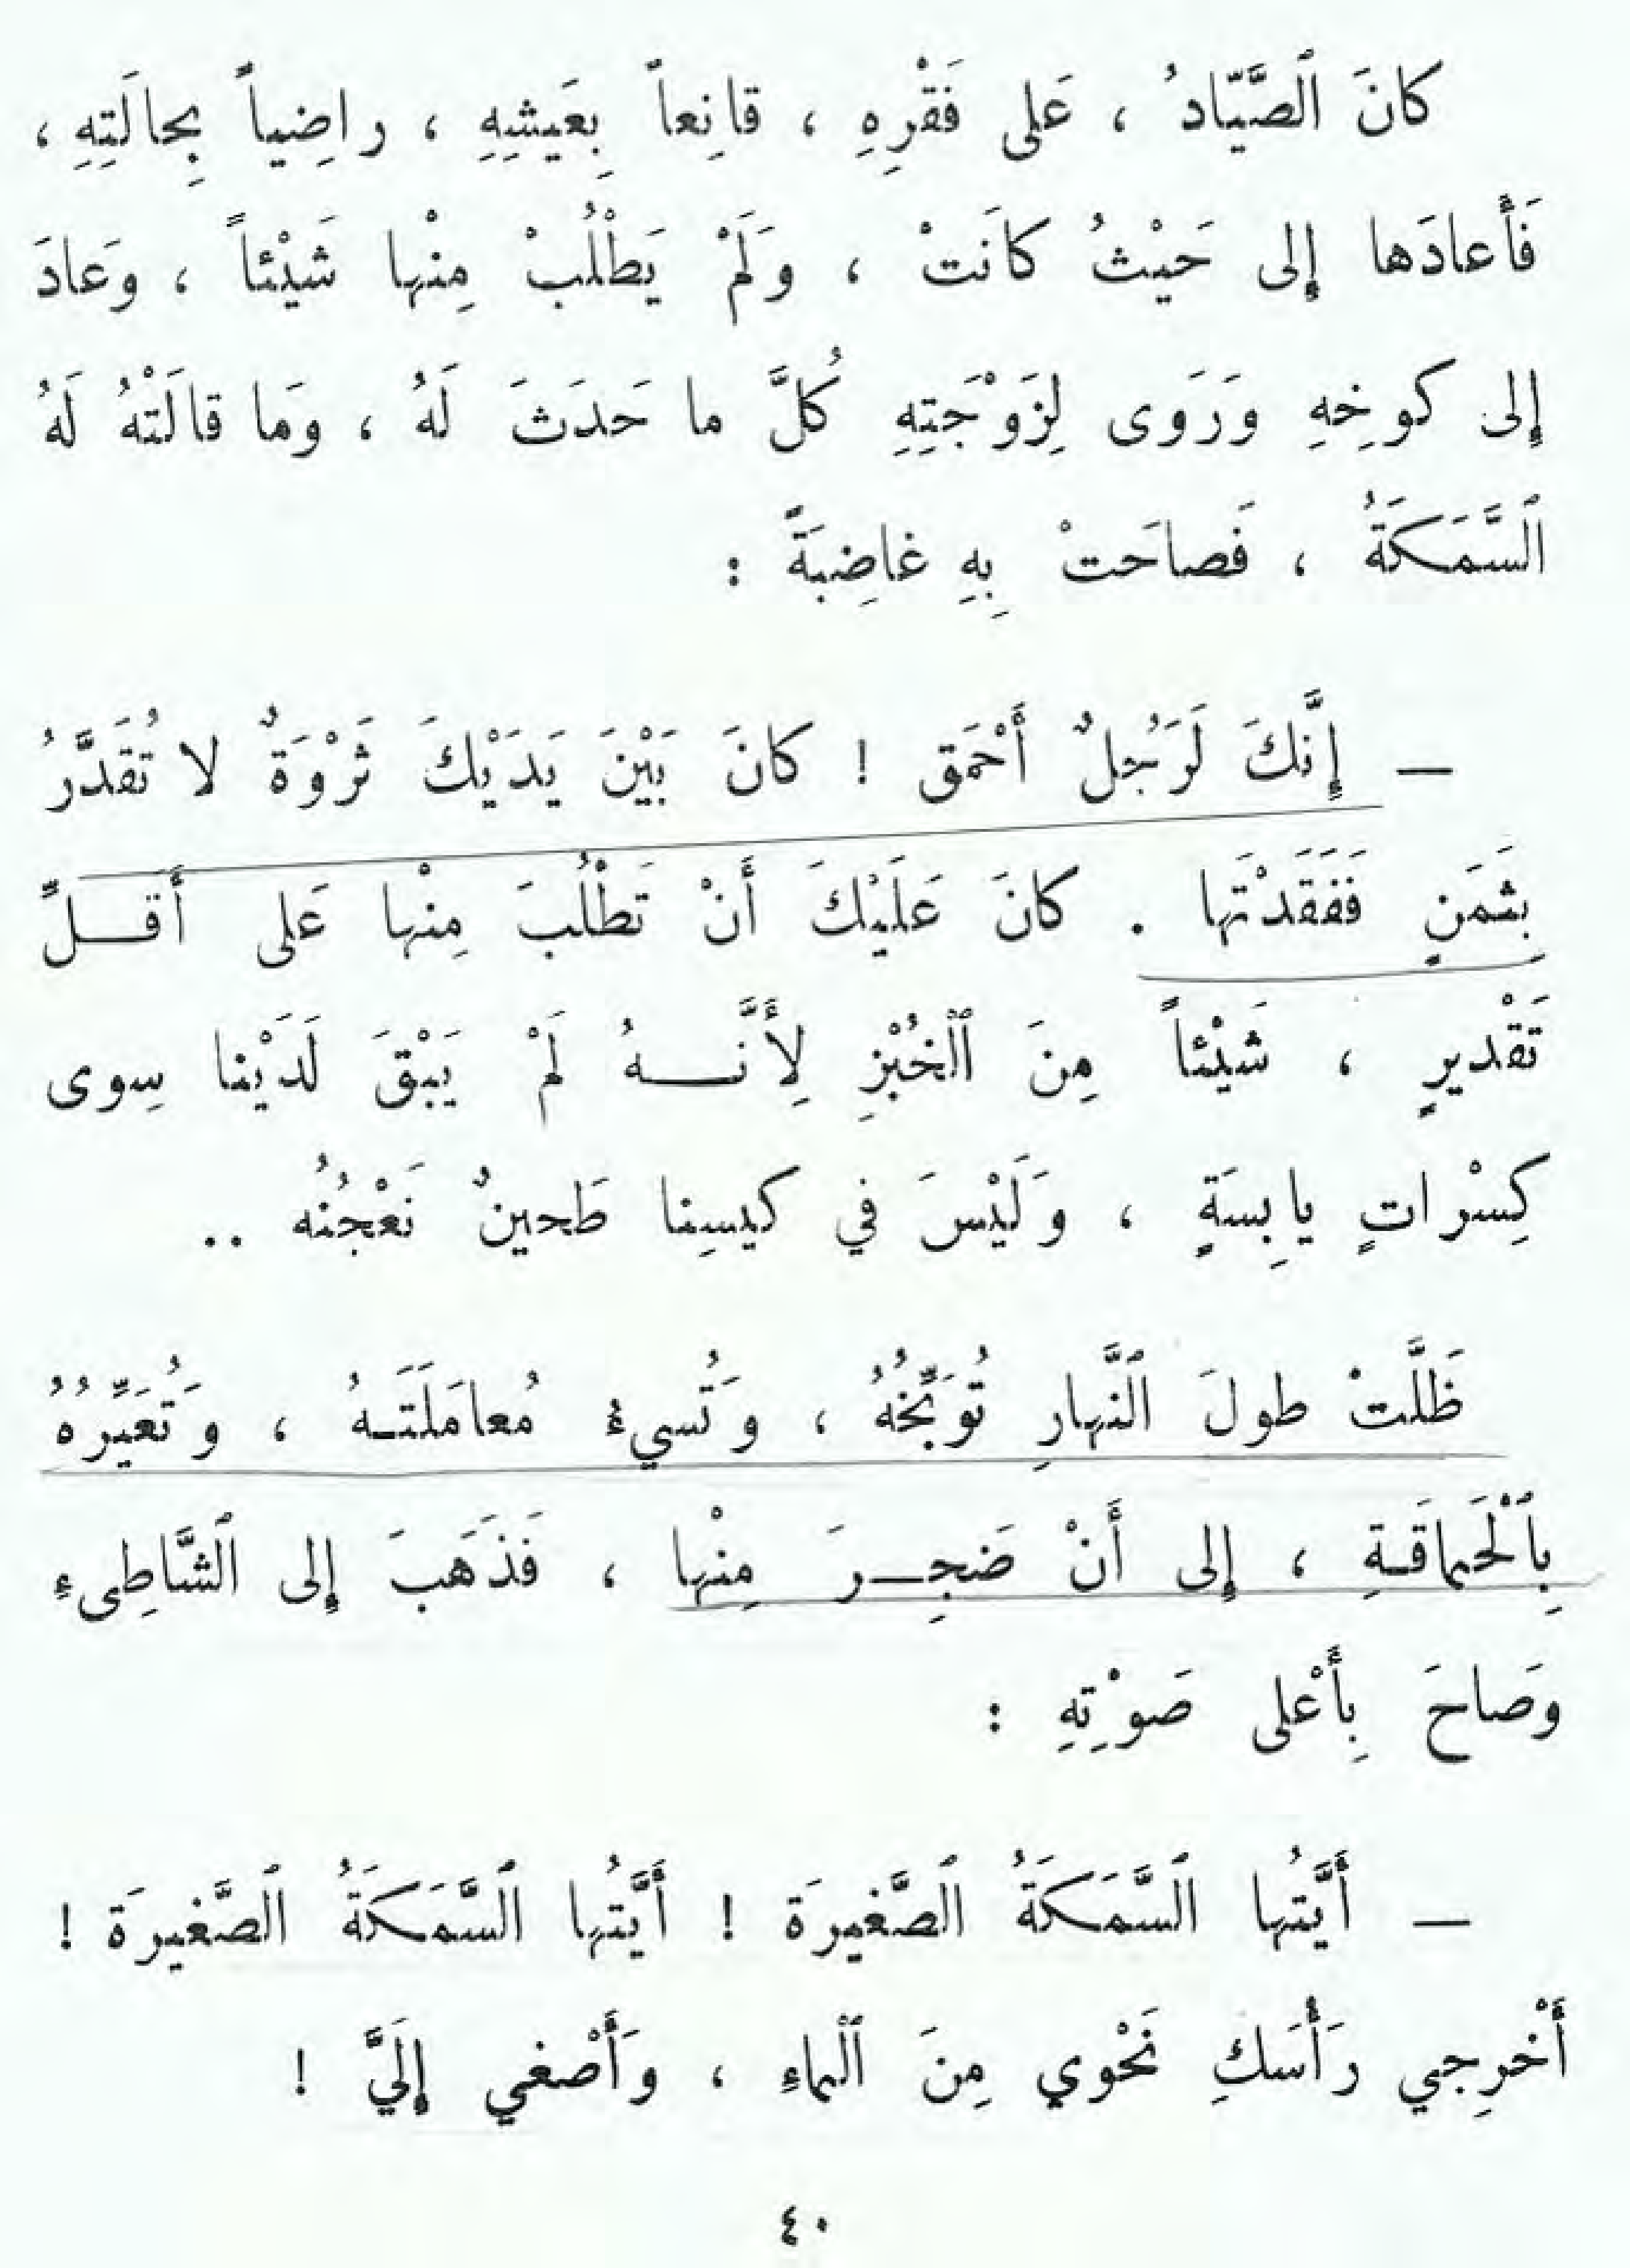 كانَ ٱلصَّيّادُ ، عَلى فَقْرِهِ ، قانِعاً بِعَيشِهِ ، راضِياً بِحالَتِهِ ،
فَأَعادَها إِلى حَيْثُ كانَتْ ، وَلَمْ يَطْلُبْ مِنْها شَيْئاً ، وَعادَ
إِلى كوخِهِ وَرَوَى لِزَوْجَتِهِ كُلَّ ما حَدَثَ لَهُ ، وَما قالَتْهُ لَهُ
ٱلسَّمَكَةُ ، فَصاحَتْ بِهِ غاضِبَةً :
— إِنَّكَ لَرَجُلٌ أَحْمَق ! كانَ بَيْنَ يَدَيْكَ ثَرْوَةٌ لا تُقَدَّرُ
بِثَمَنٍ فَفَقَدْتَها . كانَ عَلَيْكَ أَنْ تَطْلُبَ مِنْها عَلى أَقَـــلِّ
تَقْديرٍ ، شَيْئاً مِنَ ٱلْخُبْزِ لِأَنَّـــهُ لَمْ يَبْقَ لَدَيْنا سِوى
كِسْراتٍ يابِسَةٍ ، وَلَيْسَ في كيسِنا طَحينٌ نَعْجُنُه ..
ظَلَّتْ طولَ ٱلنَّهارِ تُوَبِّخُهُ ، وَتُسيءُ مُعامَلَتَـهُ ، وَتُعَيِّرُهُ
بِٱلْحَماقَـةِ ، إِلى أَنْ ضَجِـــرَ مِنْها ، فَذَهَبَ إِلى ٱلشَّاطِىءِ
وَصاحَ بِأَعْلى صَوْتِهِ :
— أَيَّتُها ٱلسَّمَكَةُ ٱلصَّغيرَة ! أَيَّتُها ٱلسَّمَكَةُ ٱلصَّغيرَة !
أَخْرِجي رَأْسَكِ نَحْوي مِنَ ٱلْماءِ ، وَأَصْغي إِلَيَّ !
٤٠